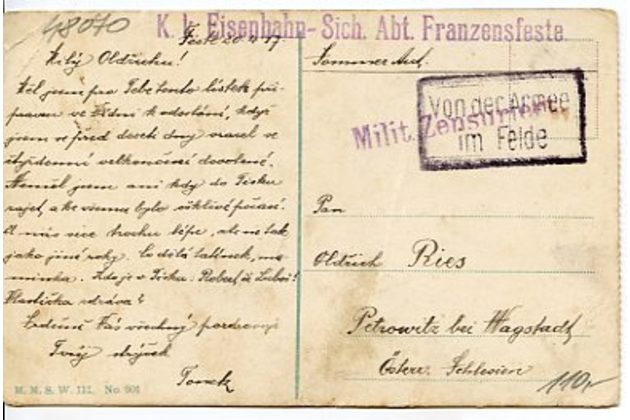 48070
K. k. Eisenbahn-Sich. Abt. Franzensfeste.
Feste 20.4.17.
Milý Oldřichu!
Měl jsem pro Tebe tento lístek při-
praven ve Vídni k odeslání, když
jsem se před deseti dny vracel ze
velkonoční dovolené.
Neměl jsem ani kdy do Tisku
zajet, a ke všemu bylo ošklivé počasí.
U nás sice trochu lépe, ale ne tak,
jako jiné roky. Co dělá tatínek, ma-
minka. Kdo je v Tisku: Robert, a Luboš?
zdráva?
Srdečně Vás všechny pozdravuje
Tvůj strýček
M. M. S. W. III. No. 601
Von der Armee
im Felde
Milit. Zensuriert
Pan
Oldřich Ries
Petrowitz bei Wagstadt
Österr. Schlesien
110,-